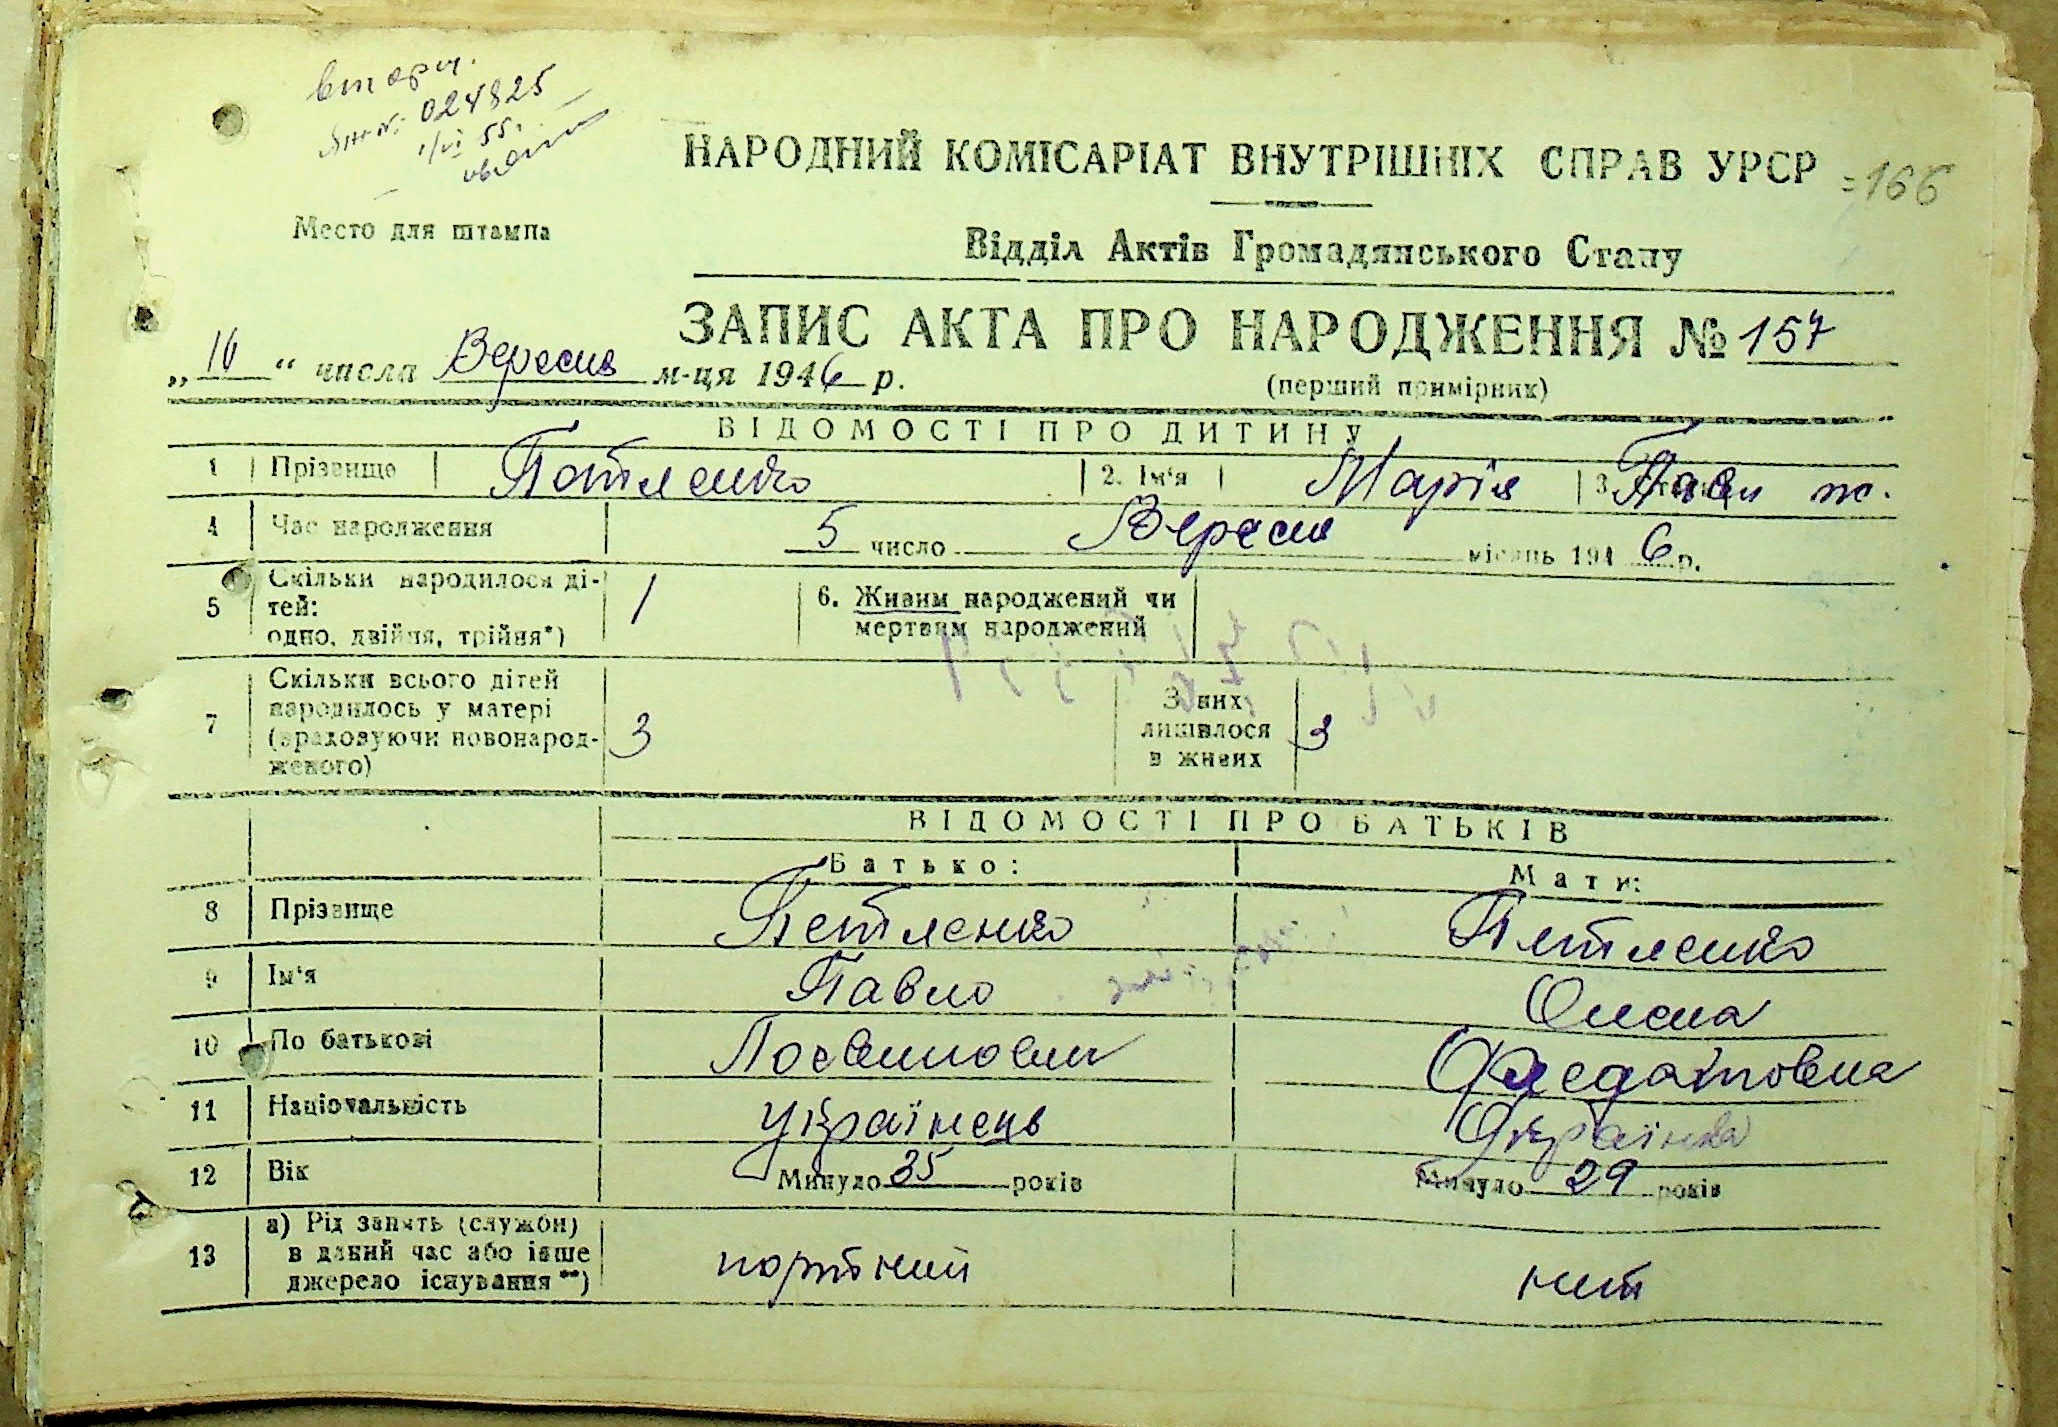 втор ч.
024825
1/VI 55 г.
НАРОДНИЙ КОМІСАРІАТ ВНУТРІШНІХ СПРАВ УРСР
166
Место для штампа
Відділ Актів Громадянського Стану
ЗАПИС АКТА ПРО НАРОДЖЕННЯ № 157
„10“ числа Вересня м-ця 1946 р.
(перший примірник)
ВІДОМОСТІ ПРО ДИТИНУ
1 Прізвище Петленко 2. Ім'я Марія 3. Стать ж.
4 Час народження 5 число Вересня місяць 1946 р.
5 Скільки народилося дітей: одно, двійня, трійня*) 1 6. Живим народжений чи мертвим народжений
7 Скільки всього дітей народилось у матері (враховуючи новонародженого) 3 З них лишилося в живих 3
ВІДОМОСТІ ПРО БАТЬКІВ
Батько: Мати:
8 Прізвище Петленко Петленко
9 Ім'я Павло Олена
10 По батькові
11 Національність Українець Українка
12 Вік Минуло 35 років Минуло 29 років
13 а) Рід занять (служби) в даний час або інше джерело існування**) портний нет